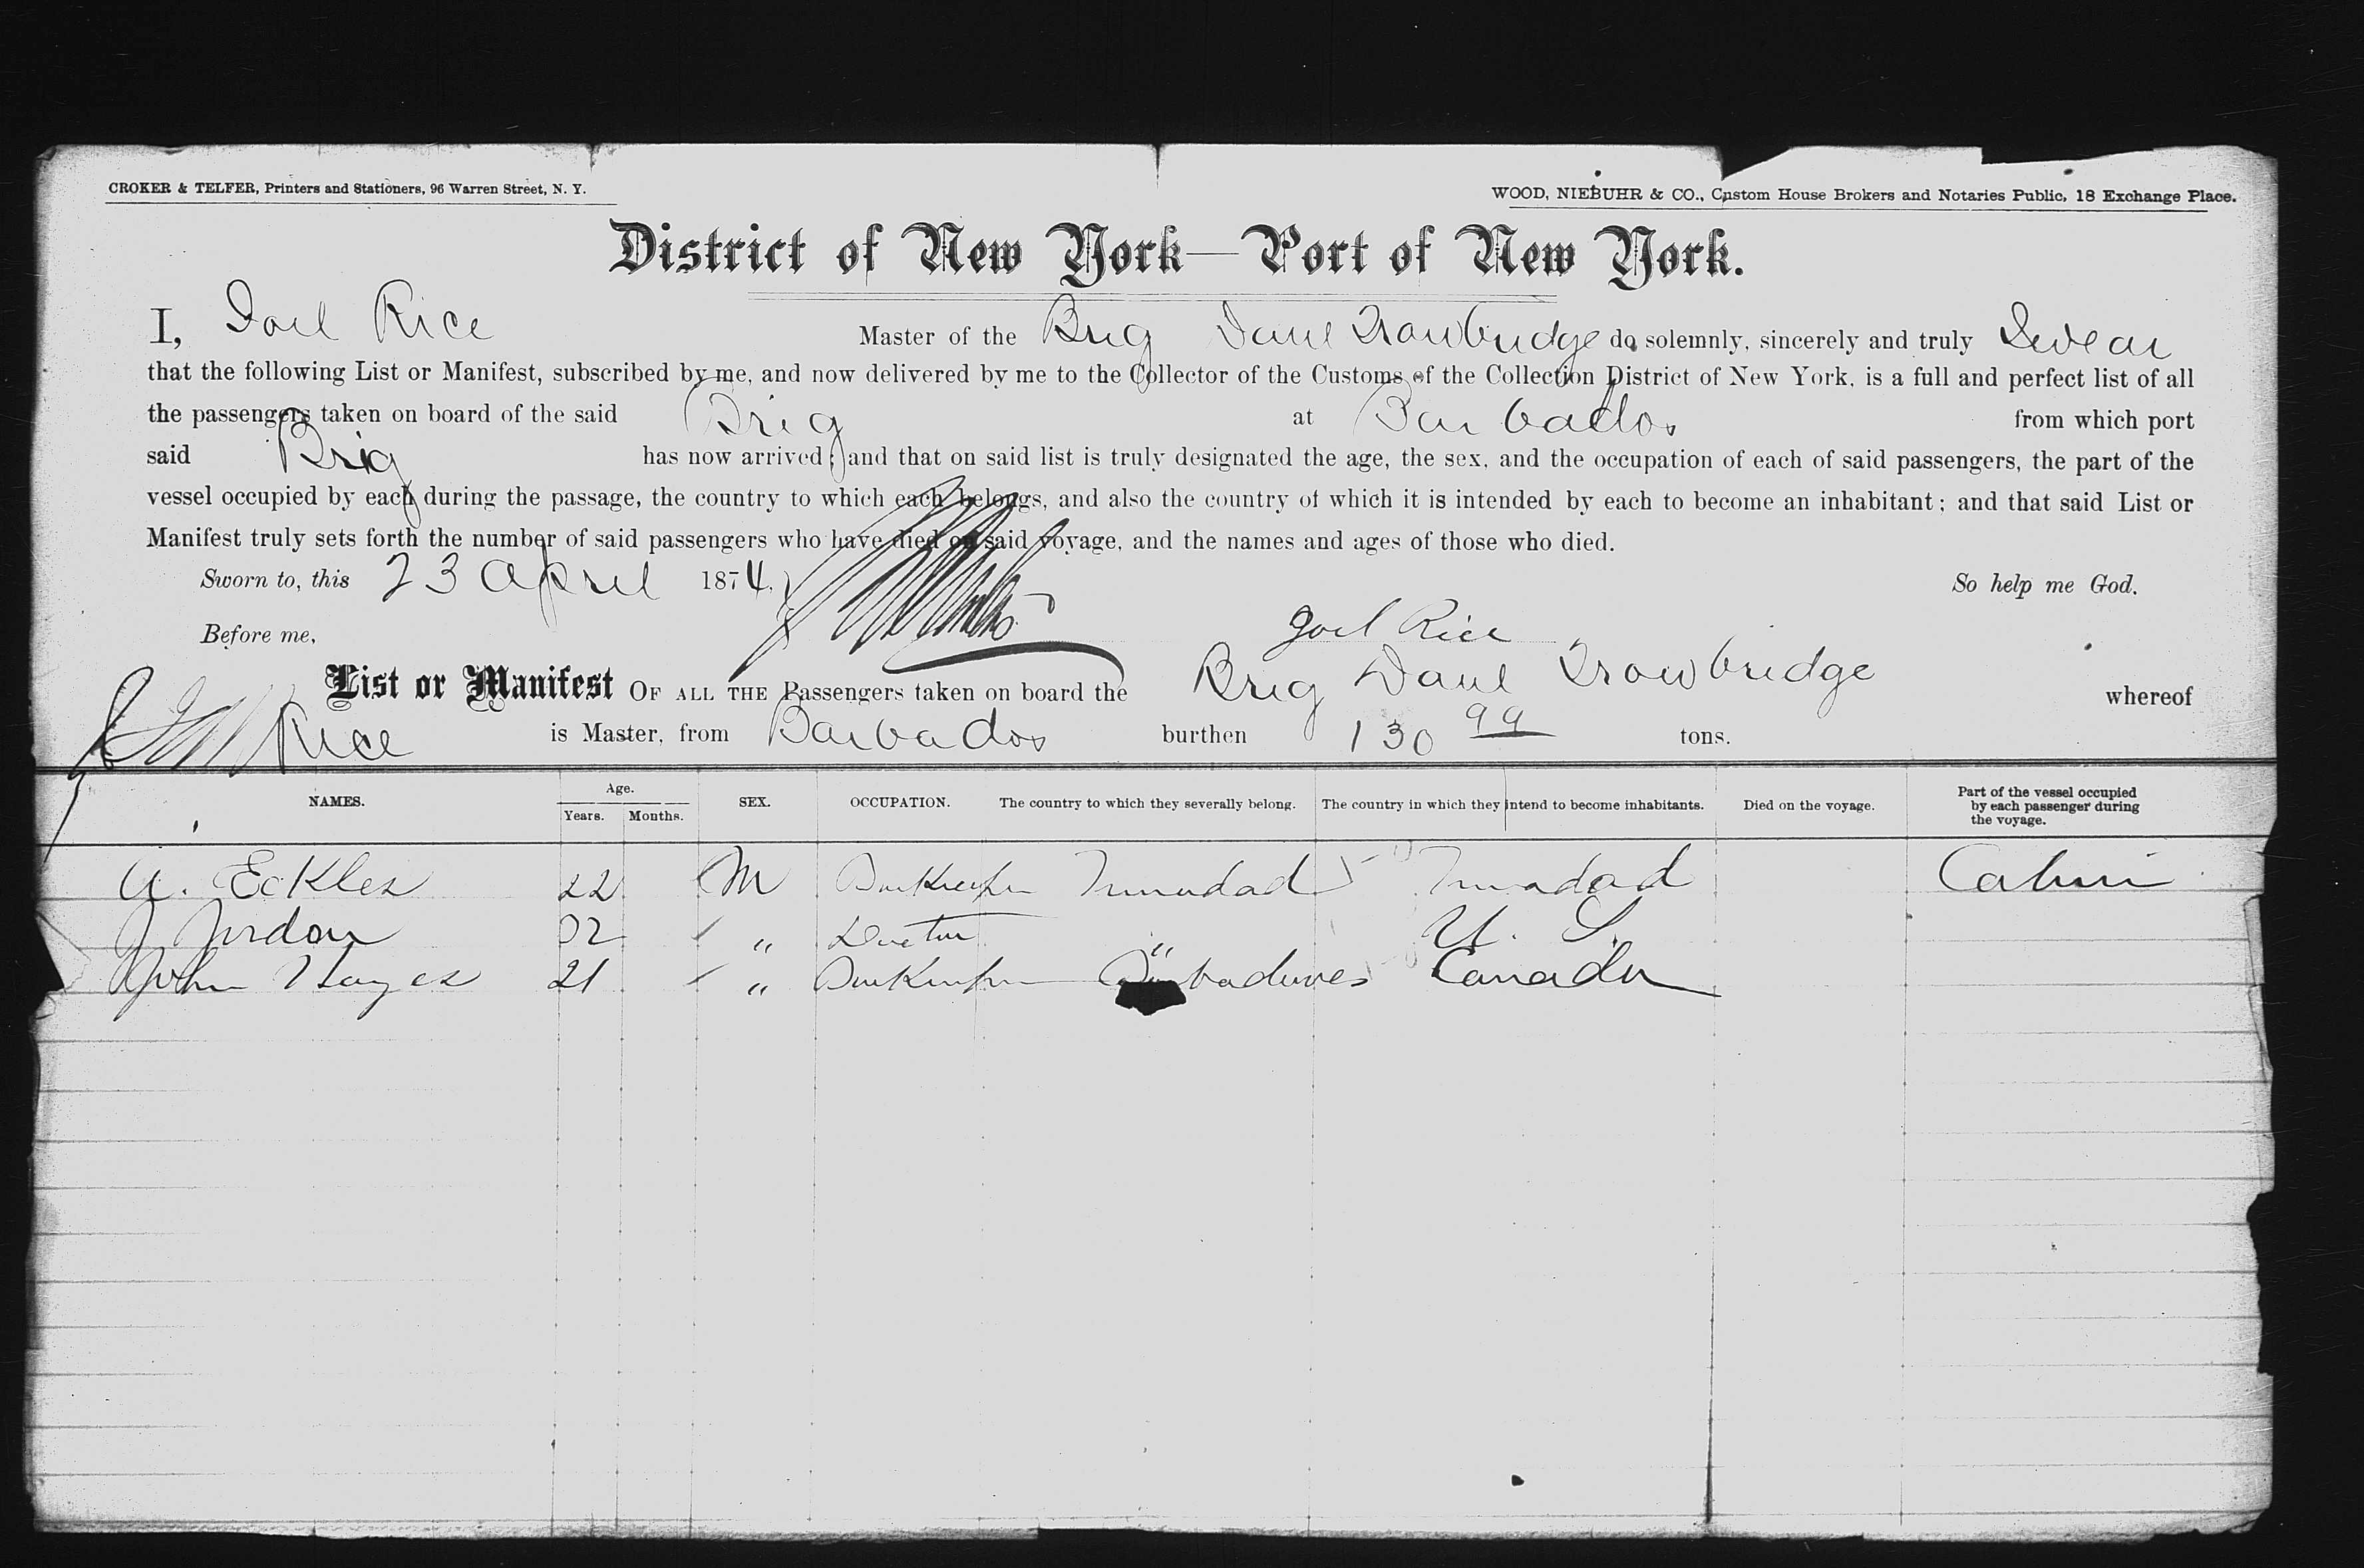 CROKER & TELFER, Printers and Stationers, 96 Warren Street, N. Y.
WOOD, NIEBUHR & CO., Custom House Brokers and Notaries Public, 18 Exchange Place.
District of New York—Port of New York.
I, Joel Rice Master of the Brig Danl Trowbridge do solemnly, sincerely and truly Swear
that the following List or Manifest, subscribed by me, and now delivered by me to the Collector of the Customs of the Collection District of New York, is a full and perfect list of all
the passengers taken on board of the said Brig at Barbados from which port
said Brig has now arrived; and that on said list is truly designated the age, the sex, and the occupation of each of said passengers, the part of the
vessel occupied by each during the passage, the country to which each belongs, and also the country of which it is intended by each to become an inhabitant; and that said List or
Manifest truly sets forth the number of said passengers who have died on said voyage, and the names and ages of those who died.
Sworn to, this 23 April 1874. So help me God.
Before me, Joel Rice
List or Manifest OF ALL THE Passengers taken on board the Brig Danl Trowbridge whereof
Rice is Master, from Barbados burthen 130 99 tons.
NAMES. Age. Years. Months. SEX. OCCUPATION. The country to which they severally belong. The country in which they intend to become inhabitants. Died on the voyage. Part of the vessel occupied by each passenger during the voyage.
A. Eckles 22 M Trinidad Trinidad Cabin
J Jordan 32 " Doctor " U. S.
John Hayes 21 " Canada